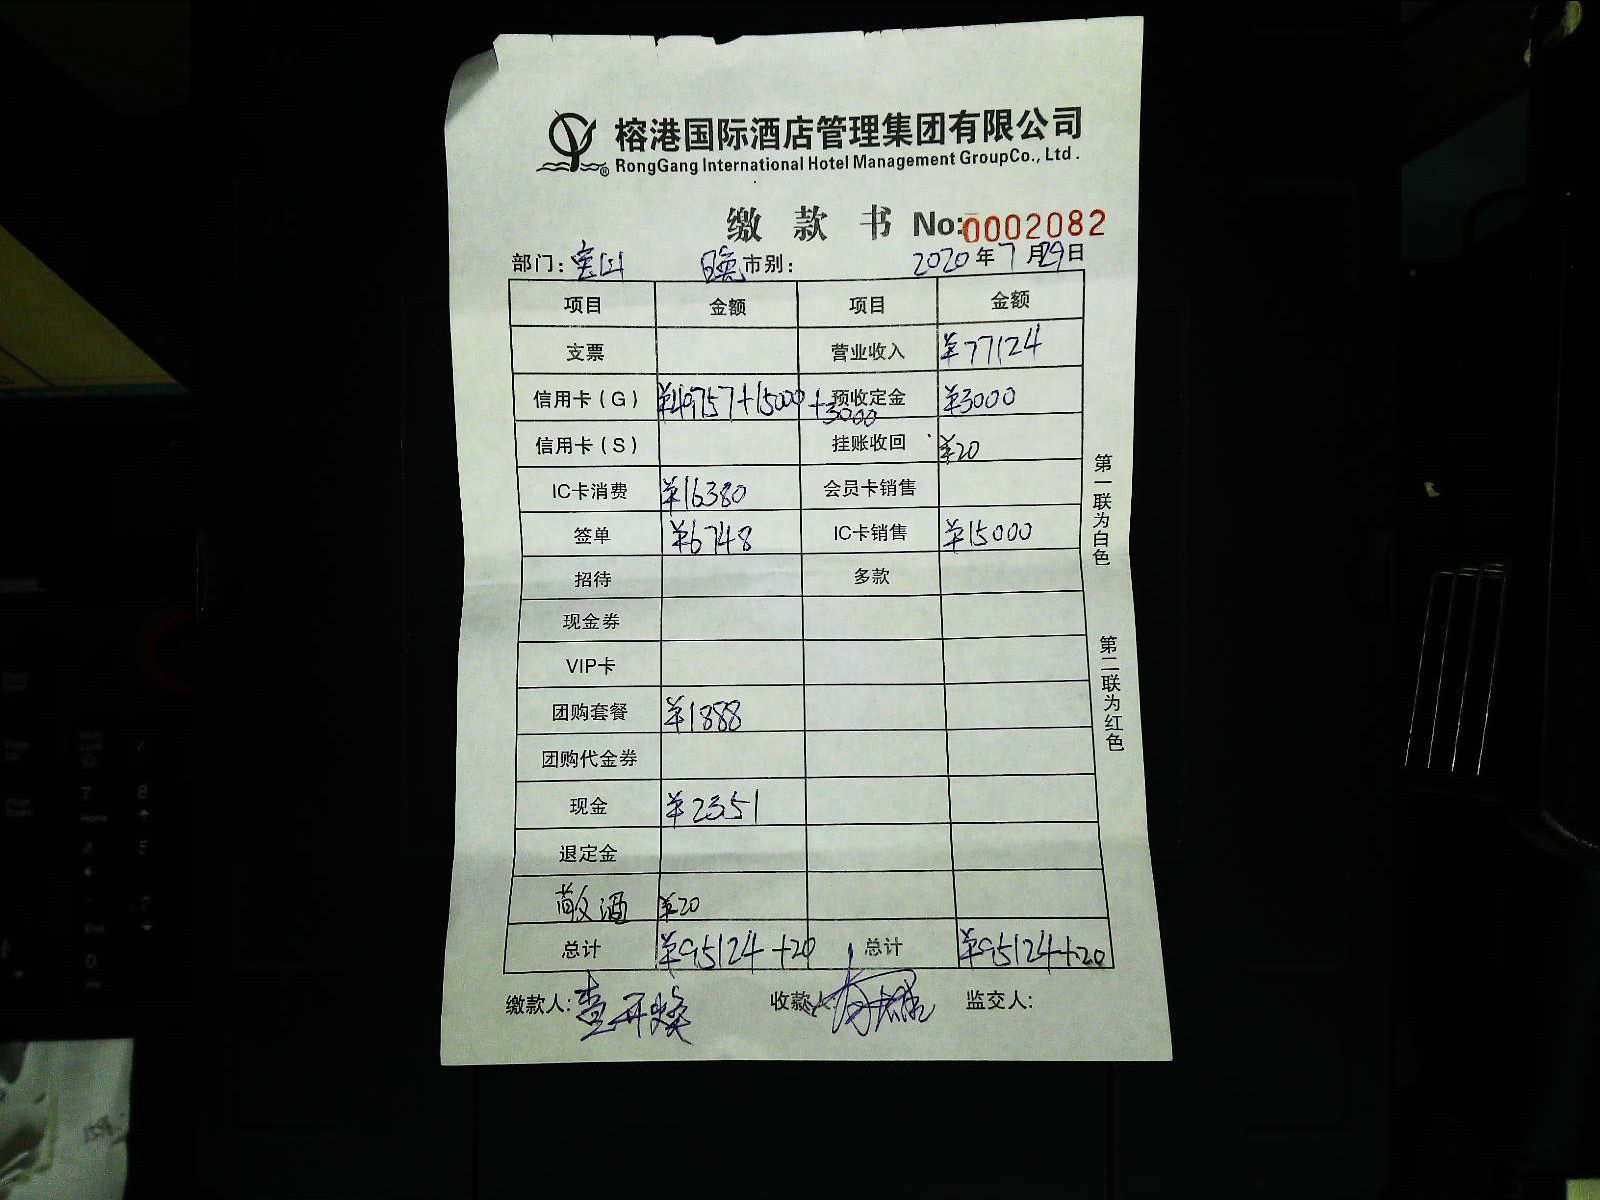 榕港国际酒店管理集团有限公司
RongGang International Hotel Management GroupCo., Ltd.
缴 款 书 No:0002082
部门: 宝山 晚市别: 2020年7月29日
项目 金额 项目 金额
支票 营业收入 ¥77124
信用卡(G) ¥49757+15000+3000 预收定金 ¥3000
信用卡(S) 挂账收回 ¥20
IC卡消费 ¥16380 会员卡销售
签单 ¥6748 IC卡销售 ¥15000
招待 多款
现金券
VIP卡
团购套餐 ¥1888
团购代金券
现金 ¥2351
退定金
散酒 ¥20
总计 ¥95124+20 总计 ¥95124+20
缴款人: 收款人: 监交人:
第一联为白色
第二联为红色